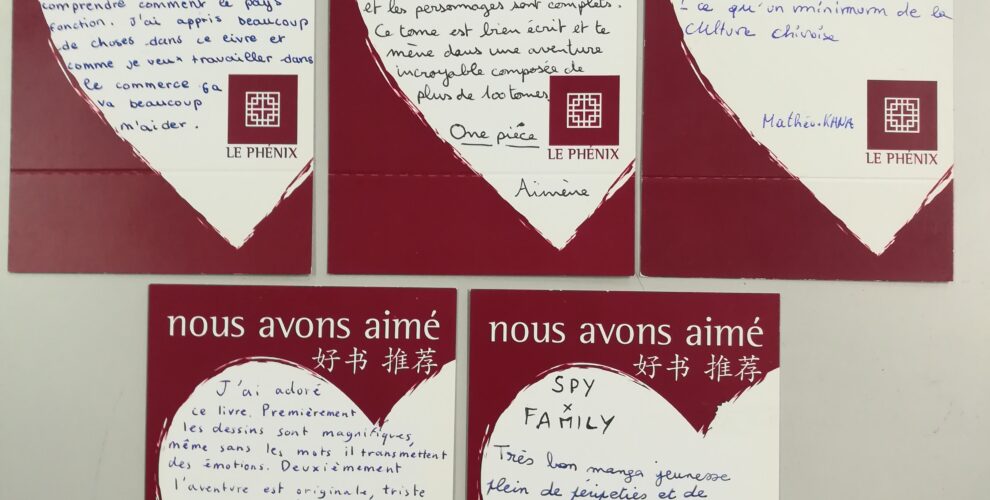 comprendre comment le pays
fonction. J'ai appris beaucoup
de choses dans ce livre et
comme je veux travailler dans
le commerce ça
va beaucoup
m'aider.
LE PHÉNIX
et les personnages sont complets.
Ce tome est bien écrit et te
mène dans une aventure
incroyable composée de
plus de 100 tomes
One pièce
LE PHÉNIX
Aimène
ce qu'un minimum de la
culture chinoise
Mathéu.KANA
LE PHÉNIX
nous avons aimé
好书 推荐
J'ai adoré
ce livre. Premièrement
les dessins sont magnifiques,
même sans les mots il transmettent
des émotions. Deuxièmement
l'aventure est originale, triste
nous avons aimé
好书 推荐
SPY
×
FAMILY
Très bon manga jeunesse
plein de péripeties et de